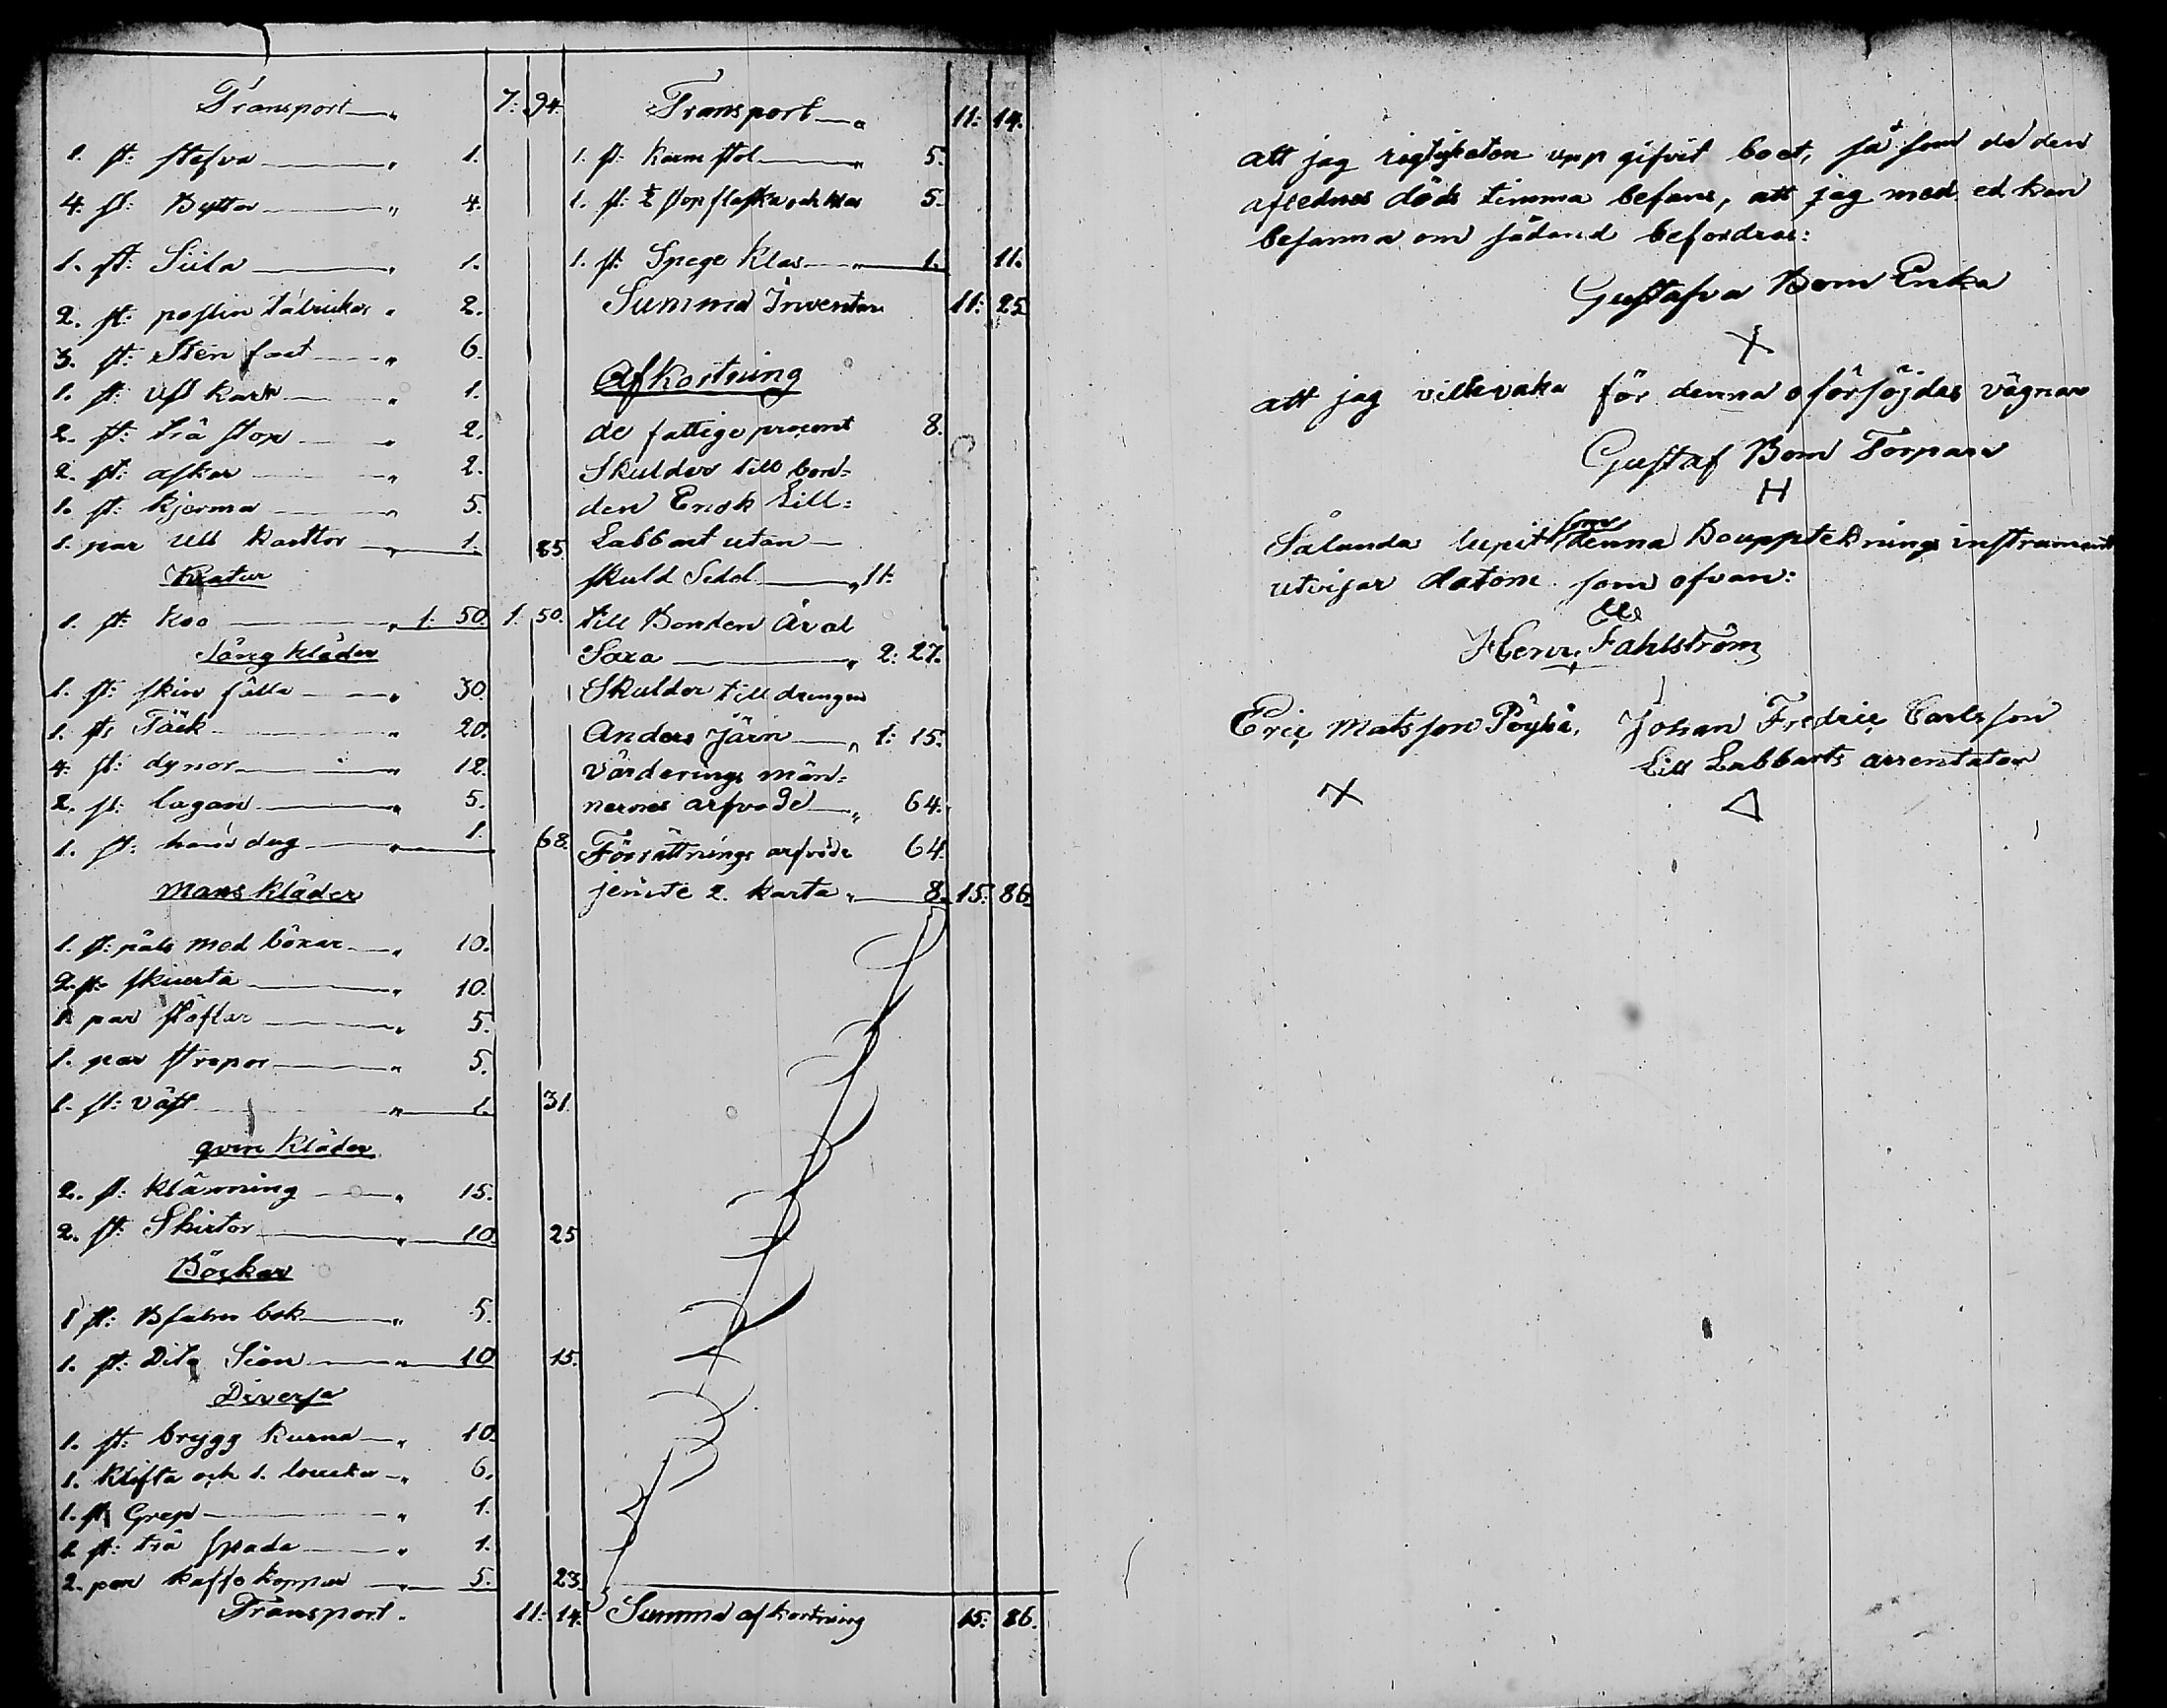 Transport 7: 94.
1. st: stefva 1.
4. st: Byttor 4.
1. st: Siila 1.
2. st: poslin tabrickor 2.
3. st: Sten faat 6.
1. st: 1.
2. st: trä stop 2.
2. st: askar 2.
1. st: kjerma 5.
1. par Ull karttor 1. 85.
Kratur
1. st: Koo 1: 50. 1. 50.
Säng kläder
1. st: skin fälla 30.
1. st: Täck 20.
4. st: dynor 12.
2. st: lagan 5.
1. st: hand dug 1. 68.
Mans kläder
1. st: päls med böxar 10.
2. st: skiuerta 10.
1. par stöflar 5.
1. par strepor 5.
1. st: väst 1. 31.
qvin kläder
2. st: klänning 15.
2. st: Skirtor 10. 25
Böckar
1 st: Bsalm bok 5.
1. st: Dito Sion 10 15.
Diversa
1. st: brygg kurna 10.
1. klifta och 1. 6.
1. st Grep 1.
1 st: trä spada 1.
2. par kaffe koppar 5. 23.
Transport. 11: 14.
Transport 11: 14.
1. st: karm stol 5.
1. st: ½ stop flaska och klas 5.
1. st: Spege klas 1. 11.
Summa Inventar 11: 25
Afkortning
de fattige procent 8.
Skulder till bon=
den Enok Lill=
Labbart utan
skuld Sedel 11:
till Bonden Äral
Saxa 2: 27.
Skulder till drengen
Anders Järn 1: 15.
Värderings män=
nernes arfvode 64.
Förrättnings arfvode 64.
jemte 2. karta 8. 15: 86.
Summa afkortning 15: 86.
att jag rigtigheten upp gifvit boet, så som de den
aflednes döds timma befans, att jag med ed kan
befanna om sådand befordras:
Gustafva Bom Enka
X
att jag vill vaka för denna oförsöjdas vägnar
Gustaf Bom Torpare
H
Sålunda lupit som denna Bouppteckning instrument
utvisar datom som ofvan:
Henr. Fahlström
Eric Matsson Pöyhi, Johan Fredric Carlsson
Lill Labbarts arrentator
X △